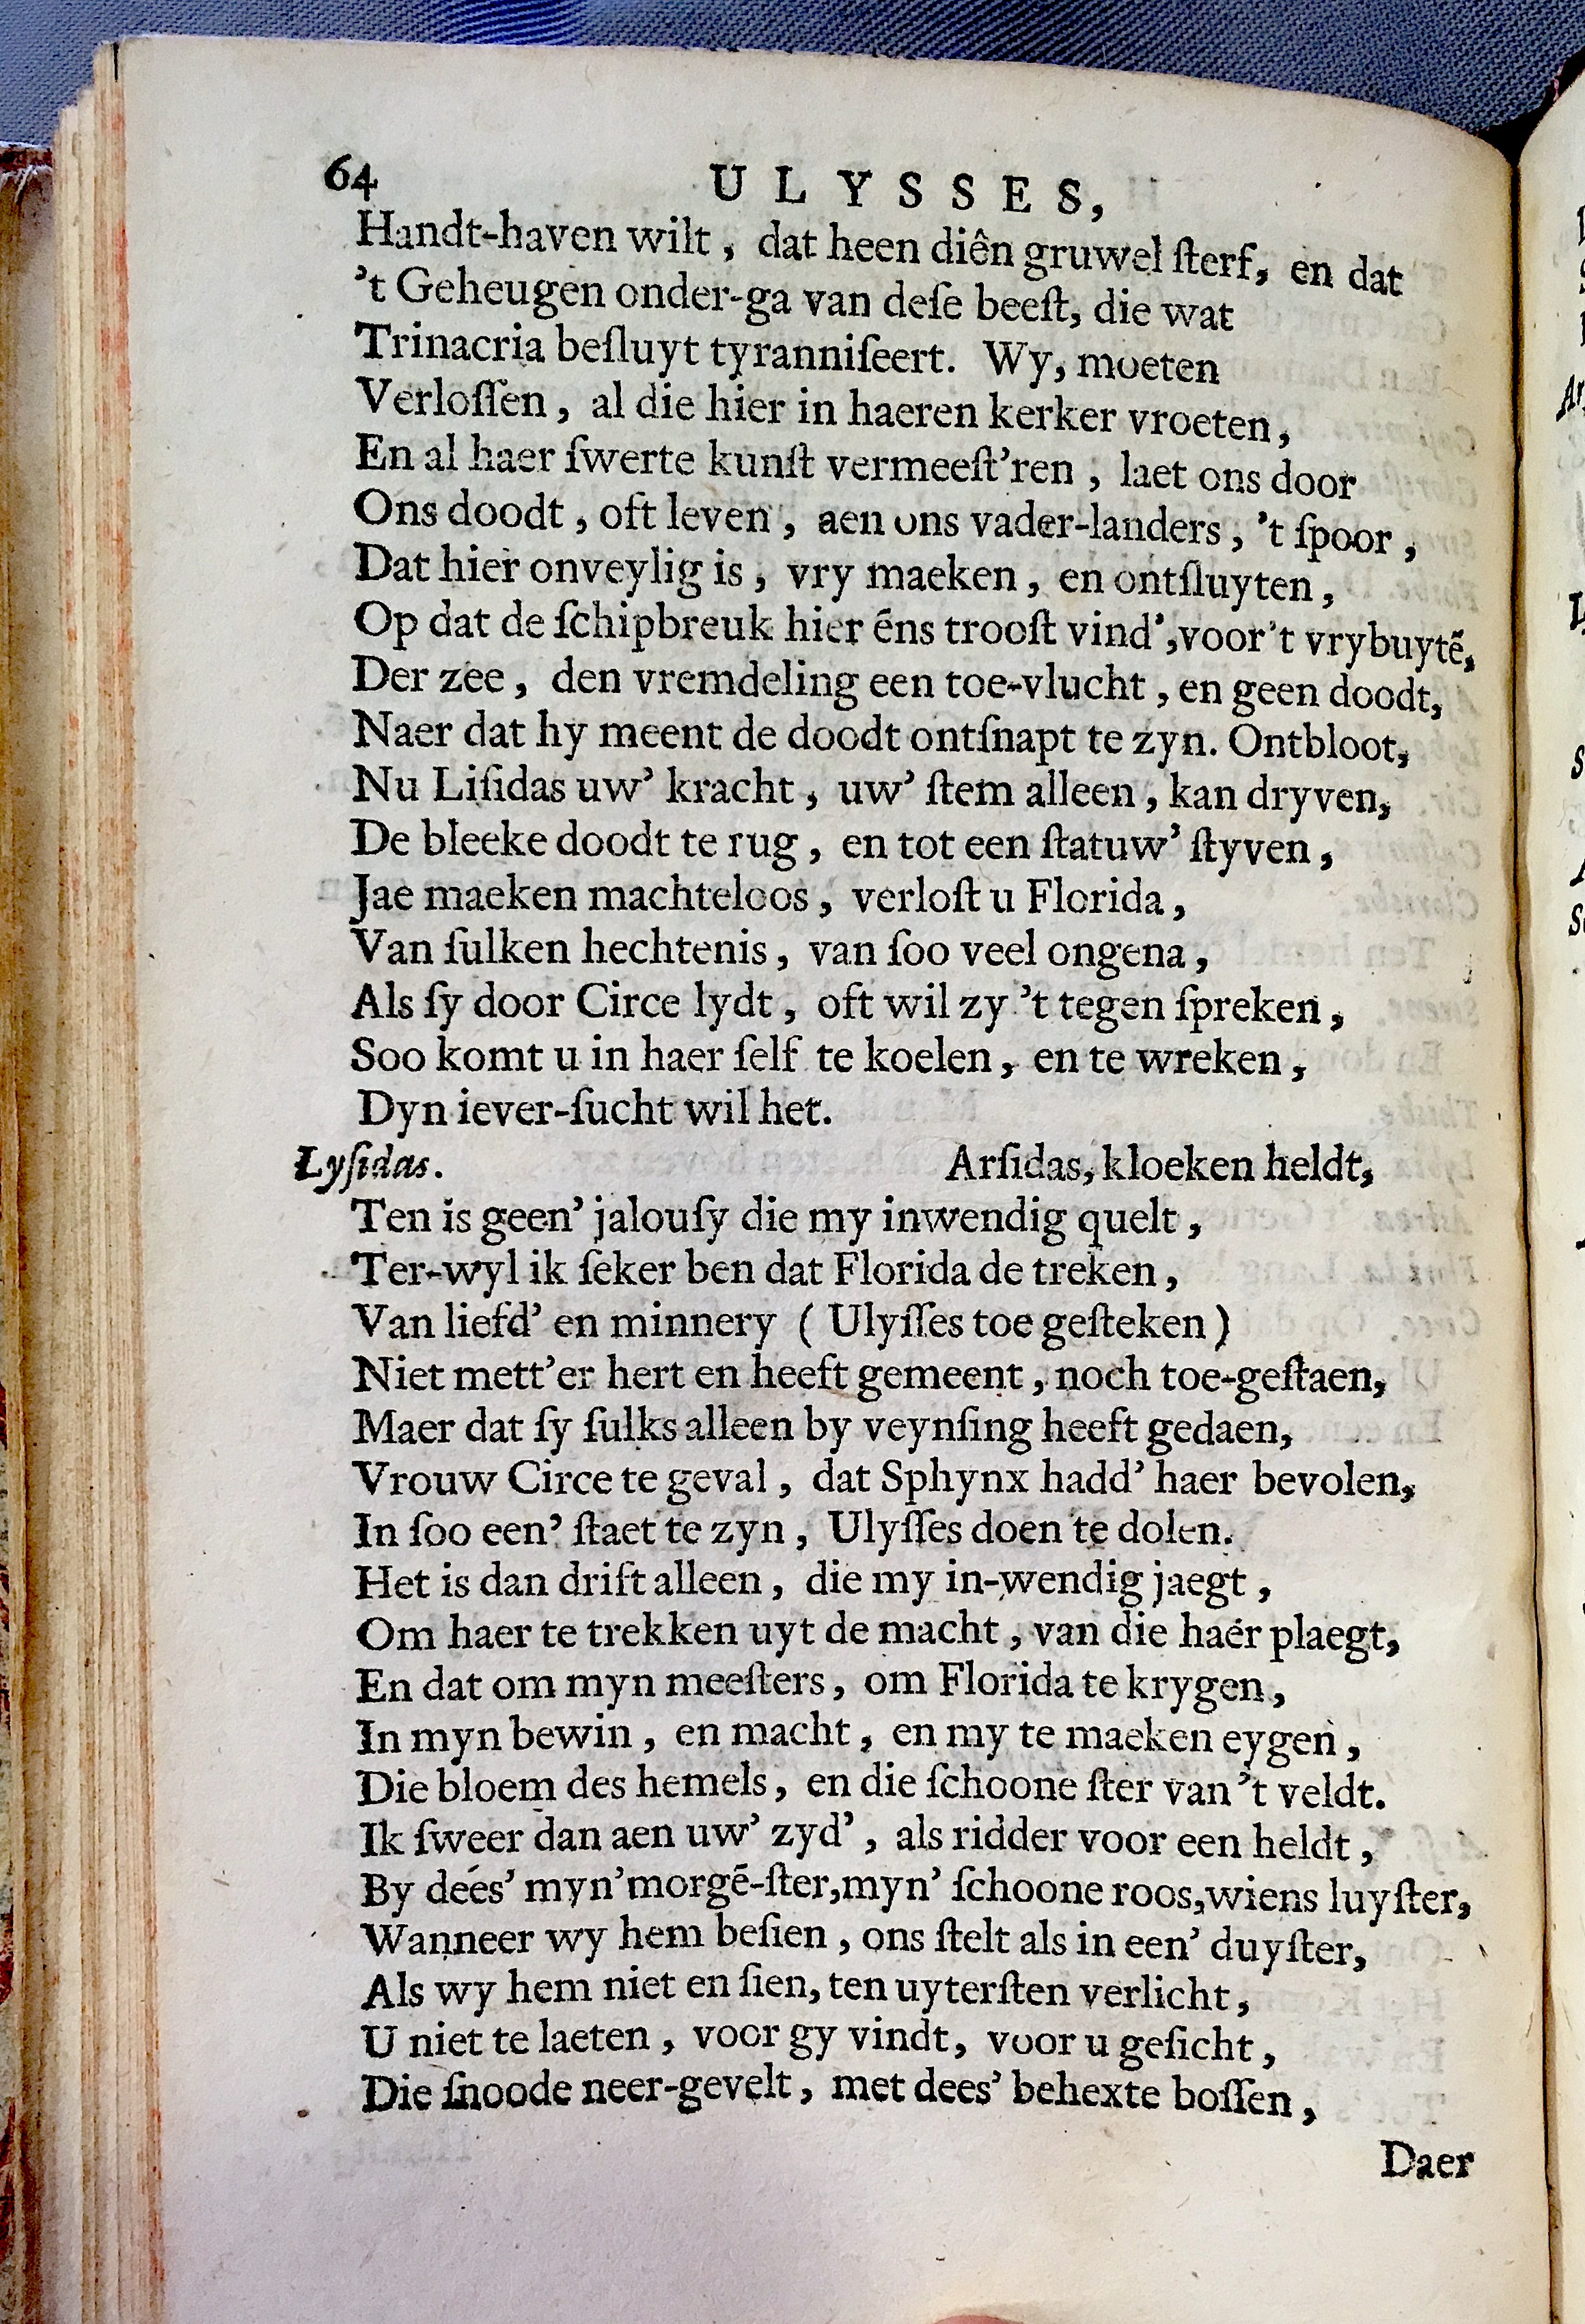 64 ULYSSES,
Handt-haven wilt, dat heen diên gruwel ſterf, en dat
't Geheugen onder-ga van deſe beeſt, die wat
Trinacria beſluyt tyranniſeert. Wy, moeten
Verloſſen, al die hier in haeren kerker vroeten,
En al haer ſwerte kunſt vermeeſt'ren, laet ons door
Ons doodt, oft leven, aen ons vader-landers, 't ſpoor,
Dat hier onveylig is, vry maeken, en ontſluyten,
Op dat de ſchipbreuk hier ēns trooſt vind', voor't vrybuytē,
Der zee, den vremdeling een toe-vlucht, en geen doodt,
Naer dat hy meent de doodt ontſnapt te zyn. Ontbloot,
Nu Liſidas uw' kracht, uw' ſtem alleen, kan dryven,
De bleeke doodt te rug, en tot een ſtatuw' ſtyven,
Jae maeken machteloos, verloſt u Florida,
Van ſulken hechtenis, van ſoo veel ongena,
Als ſy door Circe lydt, oft wil zy 't tegen ſpreken,
Soo komt u in haer ſelf te koelen, en te wreken,
Dyn iever-ſucht wil het.
Lyſidas. Arſidas, kloeken heldt,
Ten is geen' jalouſy die my inwendig quelt,
Ter-wyl ik ſeker ben dat Florida de treken,
Van liefd' en minnery (Ulyſſes toe geſteken)
Niet mett'er hert en heeft gemeent, noch toe-geſtaen,
Maer dat ſy ſulks alleen by veynſing heeft gedaen,
Vrouw Circe te geval, dat Sphynx hadd' haer bevolen,
In ſoo een' ſtaet te zyn, Ulyſſes doen te dolen.
Het is dan drift alleen, die my in-wendig jaegt,
Om haer te trekken uyt de macht, van die haer plaegt,
En dat om myn meeſters, om Florida te krygen,
In myn bewin, en macht, en my te maeken eygen,
Die bloem des hemels, en die ſchoone ſter van 't veldt.
Ik ſweer dan aen uw' zyd', als ridder voor een heldt,
By deés' myn'morgē-ſter, myn' ſchoone roos, wiens luyſter,
Wanneer wy hem beſien, ons ſtelt als in een' duyſter,
Als wy hem niet en ſien, ten uyterſten verlicht,
U niet te laeten, voor gy vindt, voor u geſicht,
Die ſnoode neer-gevelt, met dees' behexte boſſen,
Daer